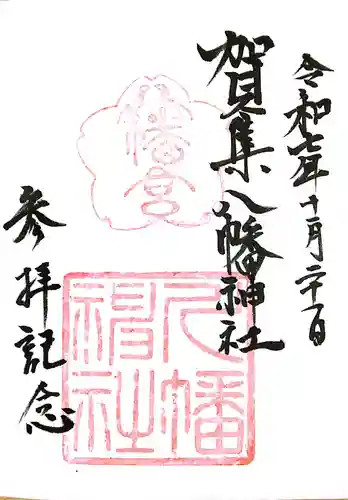 令和七年十月二十一日
賀集八幡神社
参拝記念
八幡宮
八幡神社